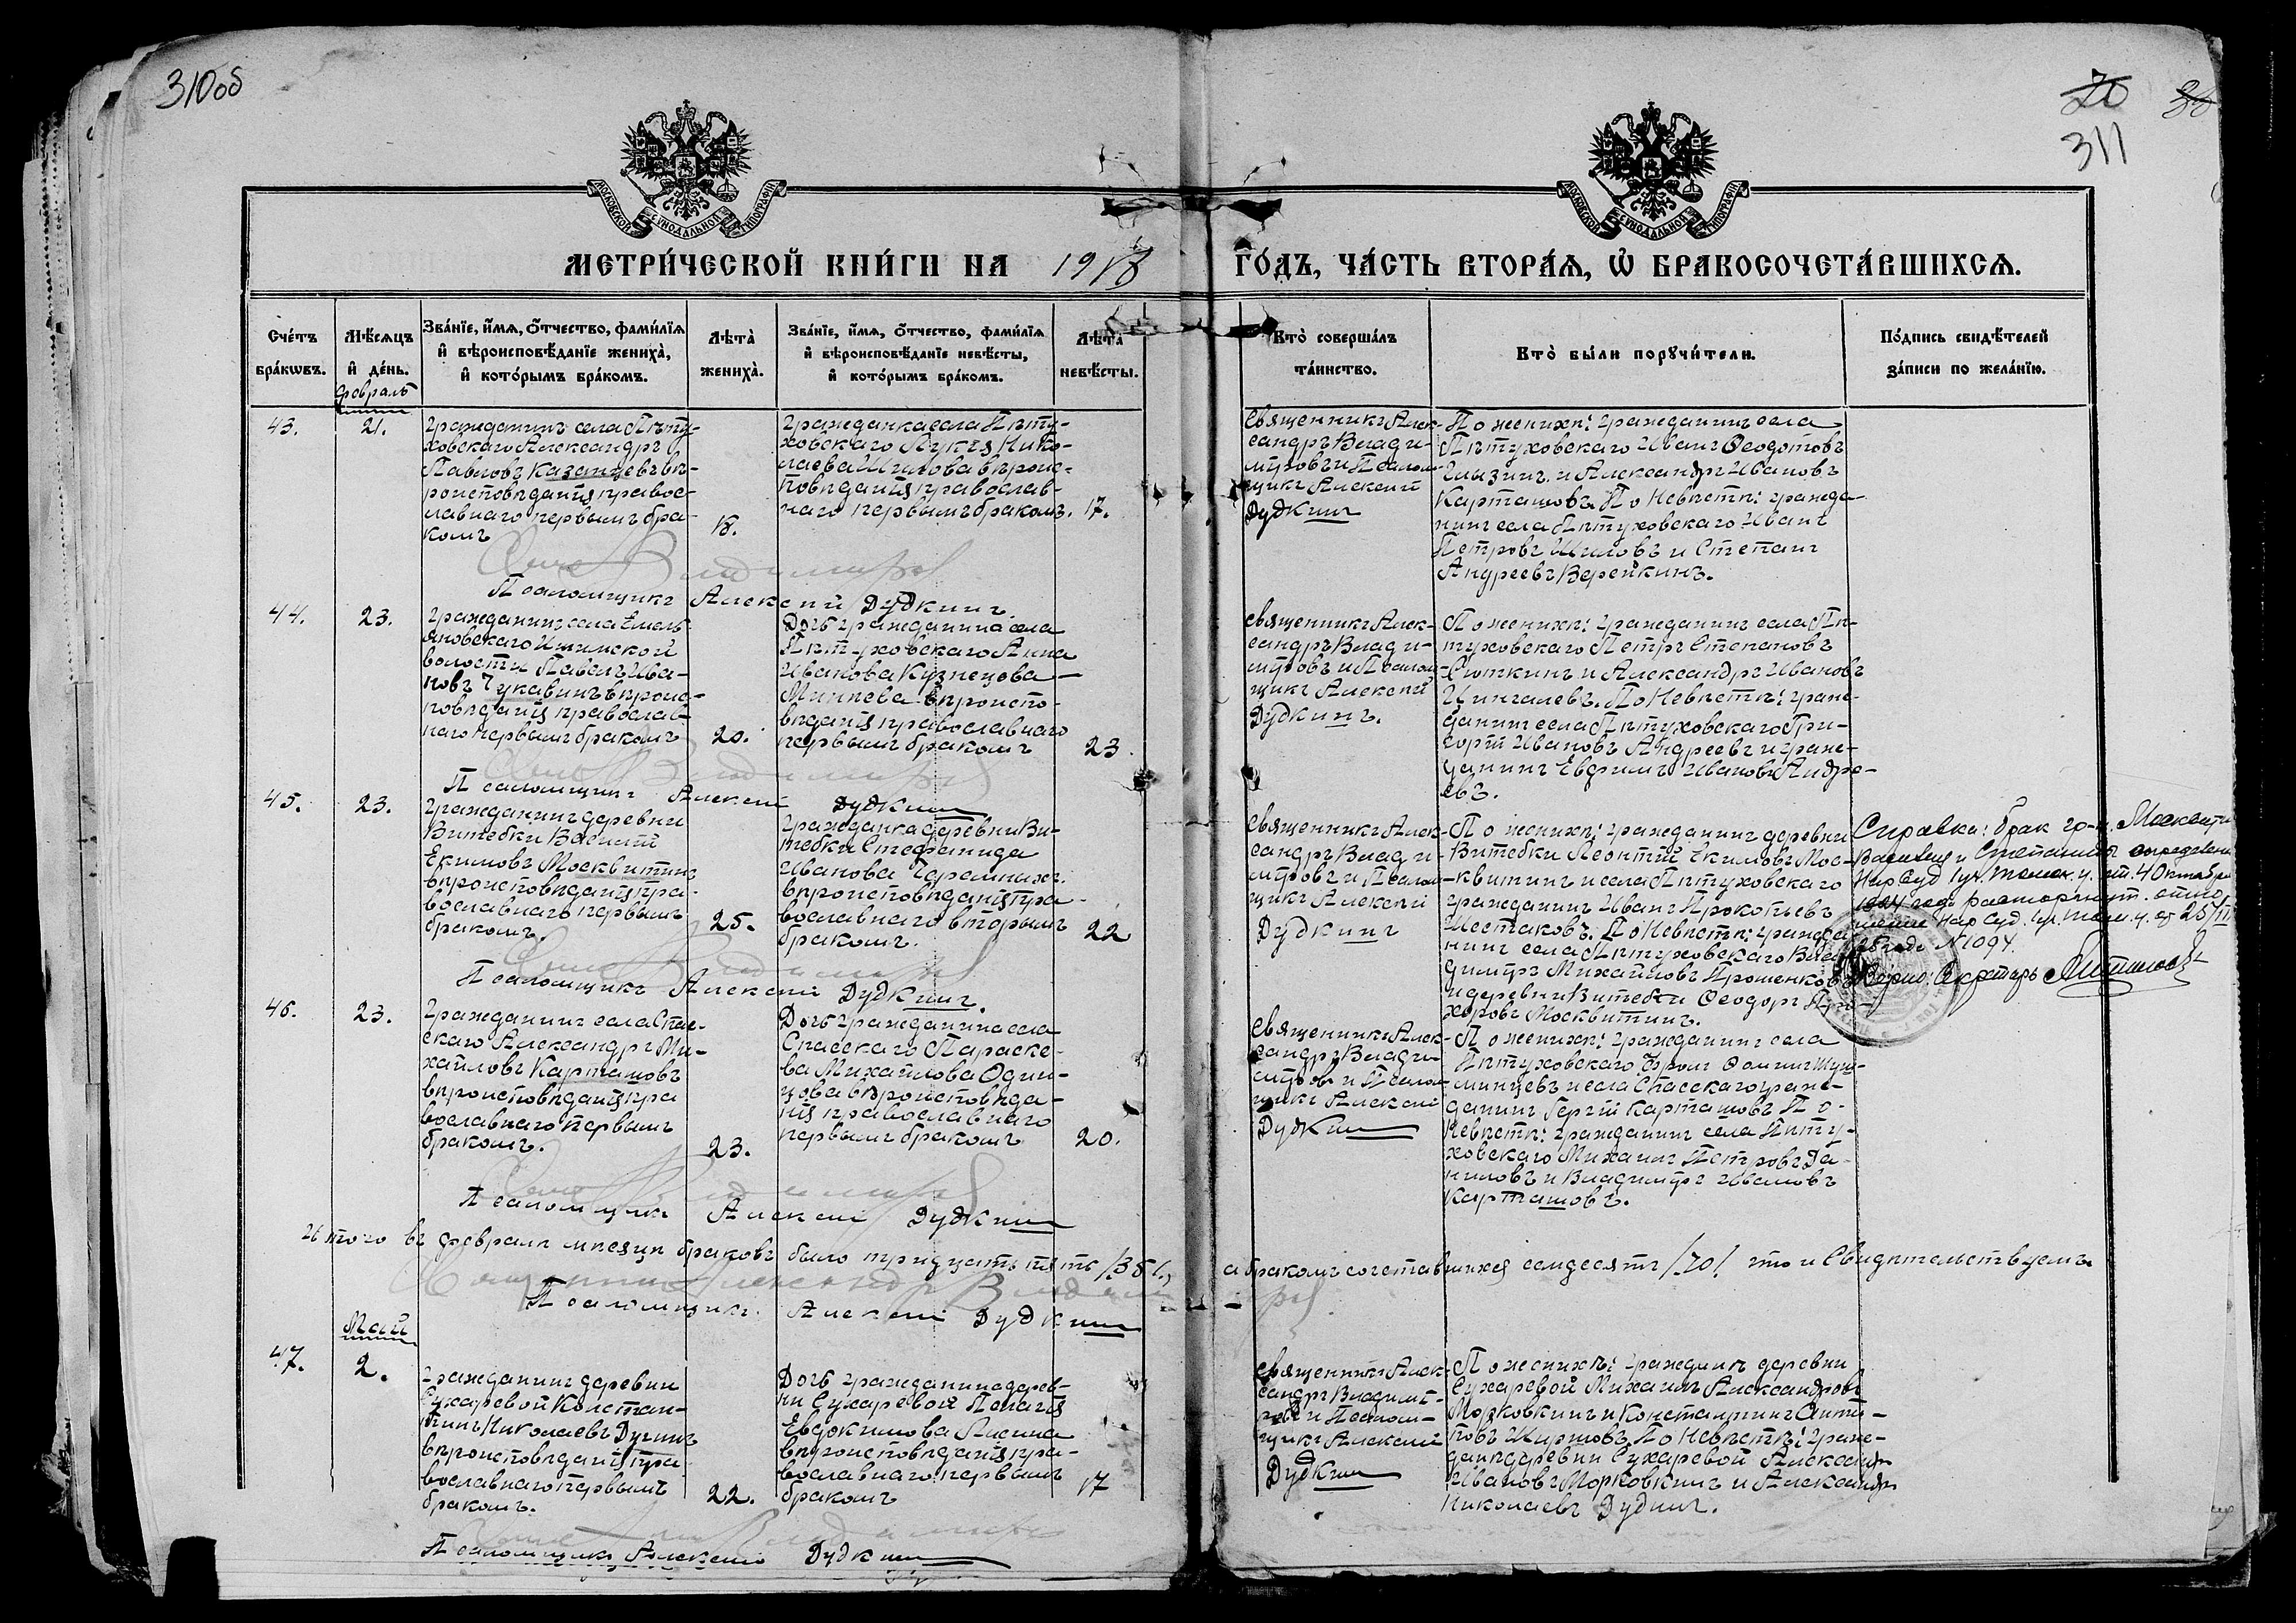 310об
20
311
МОСКОВСКОЙ СѴНОДАЛЬНОЙ ТИПОГРАФІИ
МОСКОВСКОЙ СѴНОДАЛЬНОЙ ТИПОГРАФІИ
МЕТРИ́ЧЕСКОЙ КНИ́ГИ НА 1918 ГО́ДЪ, ЧА́СТЬ ВТОРА́Я, Ѡ БРАКОСОЧЕТА́ВШИХСЯ.
Сче́тъ
бра́кѡвъ.
Мѣ́сяцъ
и҆ де́нь.
Зва́нїе, и҆́мя, ѻ҆́тчество, фами́лїя
и҆ вѣроисповѣ́данїе жениха̀,
и҆ кото́рымъ бра́комъ.
Лѣта̀
жениха̀.
Зва́нїе, и҆́мя, ѻ҆́тчество, фами́лїя
и҆ вѣроисповѣ́данїе невѣ́сты,
и҆ кото́рымъ бра́комъ.
Лѣта̀
невѣ́сты.
Кто̀ соверша́лъ
та́инство.
Кто̀ бы́ли порꙋчи́тели.
По́дпись свидѣ́телей
за́писи по жела́нїю.
Февраль
43.
21.
Гражданинъ села Пѣту-
ховскаго Александръ
Павловъ Казанцевъ вѣ-
роисповѣданія правос-
лавнаго первымъ бра-
комъ
18.
Гражданка села Пѣту-
ховскаго Лукія Нико-
лаева Шилова вѣроис-
повѣданія православ-
наго первымъ бракомъ.
17.
Священникъ Алек-
сандръ Влади-
міровъ и Псалом-
щикъ Алексій
Дудкинъ
По женихѣ: гражданинъ села
Пѣтуховскаго Иванъ Ѳеодотовъ
и Александръ Ивановъ
Карташовъ. По Невѣстѣ: гражда-
нинъ села Пѣтуховскаго Иванъ
Петровъ Шиловъ и Степанъ
Андреевъ Верейкинъ.
Псаломщикъ Алексій Дудкинъ.
44.
23.
Гражданинъ села Емель-
яновскаго Ишимской
волости Павелъ Ива-
новъ Чукавинъ вѣроис-
повѣданія православ-
наго первымъ бракомъ
20.
Дочь гражданина села
Пѣтуховскаго Анна
Иванова Кузнецова-
Минеева вѣроиспо-
вѣданія православнаго
первымъ бракомъ
23.
Священникъ Алек-
сандръ Влади-
міровъ и Псалом-
щикъ Алексій
Дудкинъ.
По женихѣ: гражданинъ села Пѣ-
туховскаго Петръ Степановъ
Сюткинъ и Александръ Ивановъ
Цингалевъ. По Невѣстѣ: граж-
данинъ села Пѣтуховскаго Гри-
горій Ивановъ Андреевъ и граж-
данинъ Евфимъ Ивановъ Андре-
евъ.
Псаломщикъ Алексій Дудкинъ
45.
23.
Гражданинъ деревни
Витебки Василій
Екимовъ Москвитинъ
вѣроисповѣданія пра-
вославнаго первымъ
бракомъ.
25.
Гражданка деревни Ви-
тебки Стефанида
Иванова Черемнихъ
вѣроисповѣданія пра-
вославнаго вторымъ
бракомъ.
22
Священникъ Алек-
сандръ Влади-
міровъ и Псалом-
щикъ Алексій
Дудкинъ
По женихѣ: гражданинъ деревни
Витебки Леонтій Екимовъ Мос-
квитинъ и села Пѣтуховскаго
гражданинъ Иванъ Прокопьевъ
Шестаковъ. По Невѣстѣ: гражда-
нинъ села Пѣтуховскаго Вла-
димиръ Михайловъ Прошенковъ
и деревни Витебки Ѳеодоръ Про-
хоровъ Москвитинъ.
Справка: брак гр-н. Москвити
Василия и Степаниды определен.
Нар Суд 1 уч. Томск. у. от 4 Октября
1924 года расторгнут.
Нар Суд. 1 уч. Том. у. от 25/II
25 года № 1094.
Верно: Секретарь
Псаломщикъ Алексій Дудкинъ.
46.
23.
Гражданинъ села Спас-
скаго Александръ Ми-
хайловъ Карташовъ
вѣроисповѣданія пра-
вославнаго первымъ
бракомъ.
23.
Дочь гражданина села
Спасскаго Параске-
ва Михайлова Один-
цова вѣроисповѣда-
нія православнаго
первымъ бракомъ
20.
Священникъ Алек-
сандръ Влади-
міровъ и Псалом-
щикъ Алексій
Дудкинъ
По женихѣ: гражданинъ села
Пѣтуховскаго Фролъ Ѳоминъ Шуш-
минцевъ и села Спасскаго граж-
данинъ Гергій Карташовъ. По-
Невѣстѣ: гражданинъ села Пѣту-
ховскаго Михаилъ Петровъ Да-
ниловъ и Владиміръ Ивановъ
Карташовъ.
Псаломщикъ Алексій Дудкинъ
Итого въ февралѣ мѣсяцѣ браковъ было тридцать пять /35/, а бракомъ сочетавшихся семдесятъ /70/ что и Свидѣтельствуемъ
Священникъ Александръ Владиміровъ
Псаломщикъ Алексій Дудкинъ
Май
47.
2.
Гражданинъ деревни
Сухаревой Констан-
тинъ Николаевъ Дунинъ
вѣроисповѣданія пра-
вославнаго первымъ
бракомъ.
22.
Дочь гражданина дерев-
ни Сухаревой Пелагія
Евдокимова Ляпина
вѣроисповѣданія пра-
вославнаго первымъ
бракомъ
17
Священникъ Алек-
сандръ Владимі-
ровъ и Псалом-
щикъ Алексій
Дудкинъ
По женихѣ: гражданинъ деревни
Сухаревой Михаилъ Александровъ
Морковкинъ и Константинъ Анти-
повъ Ширшовъ. По Невѣстѣ: граж-
данин деревни Сухаревой Александръ
Ивановъ Морковкинъ и Александръ
Николаевъ Дунинъ.
Псаломщикъ Алексій Дудкинъ